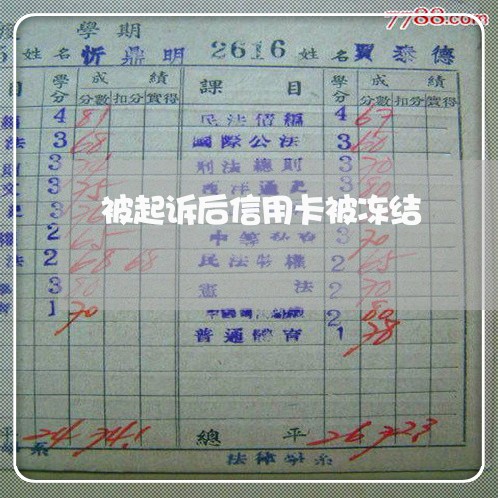 7788.com
學期
姓名 忻鼎明 2616 姓名 賈泰德
目 學分 成績 課目 學分 成績
分數 扣分 實得 分數 扣分 實得
4 81 民法債編 4 67
法 3 68 國際公法 3 60
3 刑法總則 3 70
3 75 西洋通史 3 80
被起诉后信用卡被冻结
2 65 3 70
法 2 68 68 民法物權 2 65
3 80 憲法 2 70
1 70 2 80
普通體育 1 78
平 24 74.1 總平 26 72.3
系 法律學系